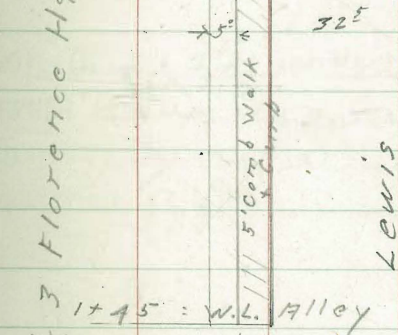 32⁵
5⁰
3 Florence H
5' Comb Walk
+ Curb
Lewis
1+45 = W.L. Alley